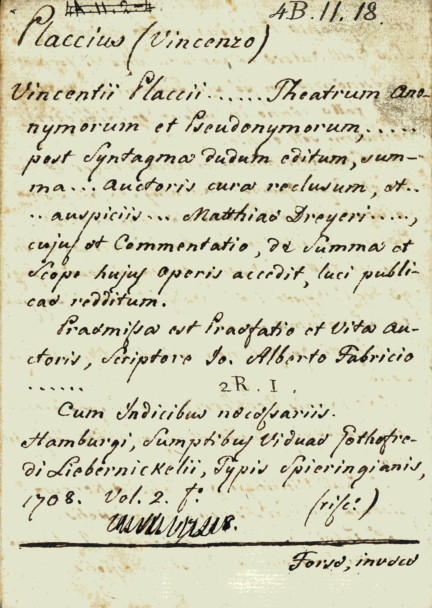 4B.11.18.
Placcius (Vincenzo)
Vincentii Placcii ...... Theatrum Ano-
nymorum et Pseudonymorum, .....
post Syntagma dudum editum, sum-
ma ... Auctoris cura reclusum, et ..
.. auspiciis ... Matthiae Dreyeri .....,
cujus et Commentatio, de Summa et
Scopo hujus Operis accedit, luci publi-
cae redditum.
Praemissa est Praefatio et Vita Au-
ctoris, Scriptore Io. Alberto Fabricio
...... 2R.I.
Cum Indicibus necessariis.
Hamburgi, Sumptibus Viduae Gothofre-
di Liebernickelii, Typis Spieringianis,
1708. Vol. 2. fº.
(rifc.)
Forse, invece